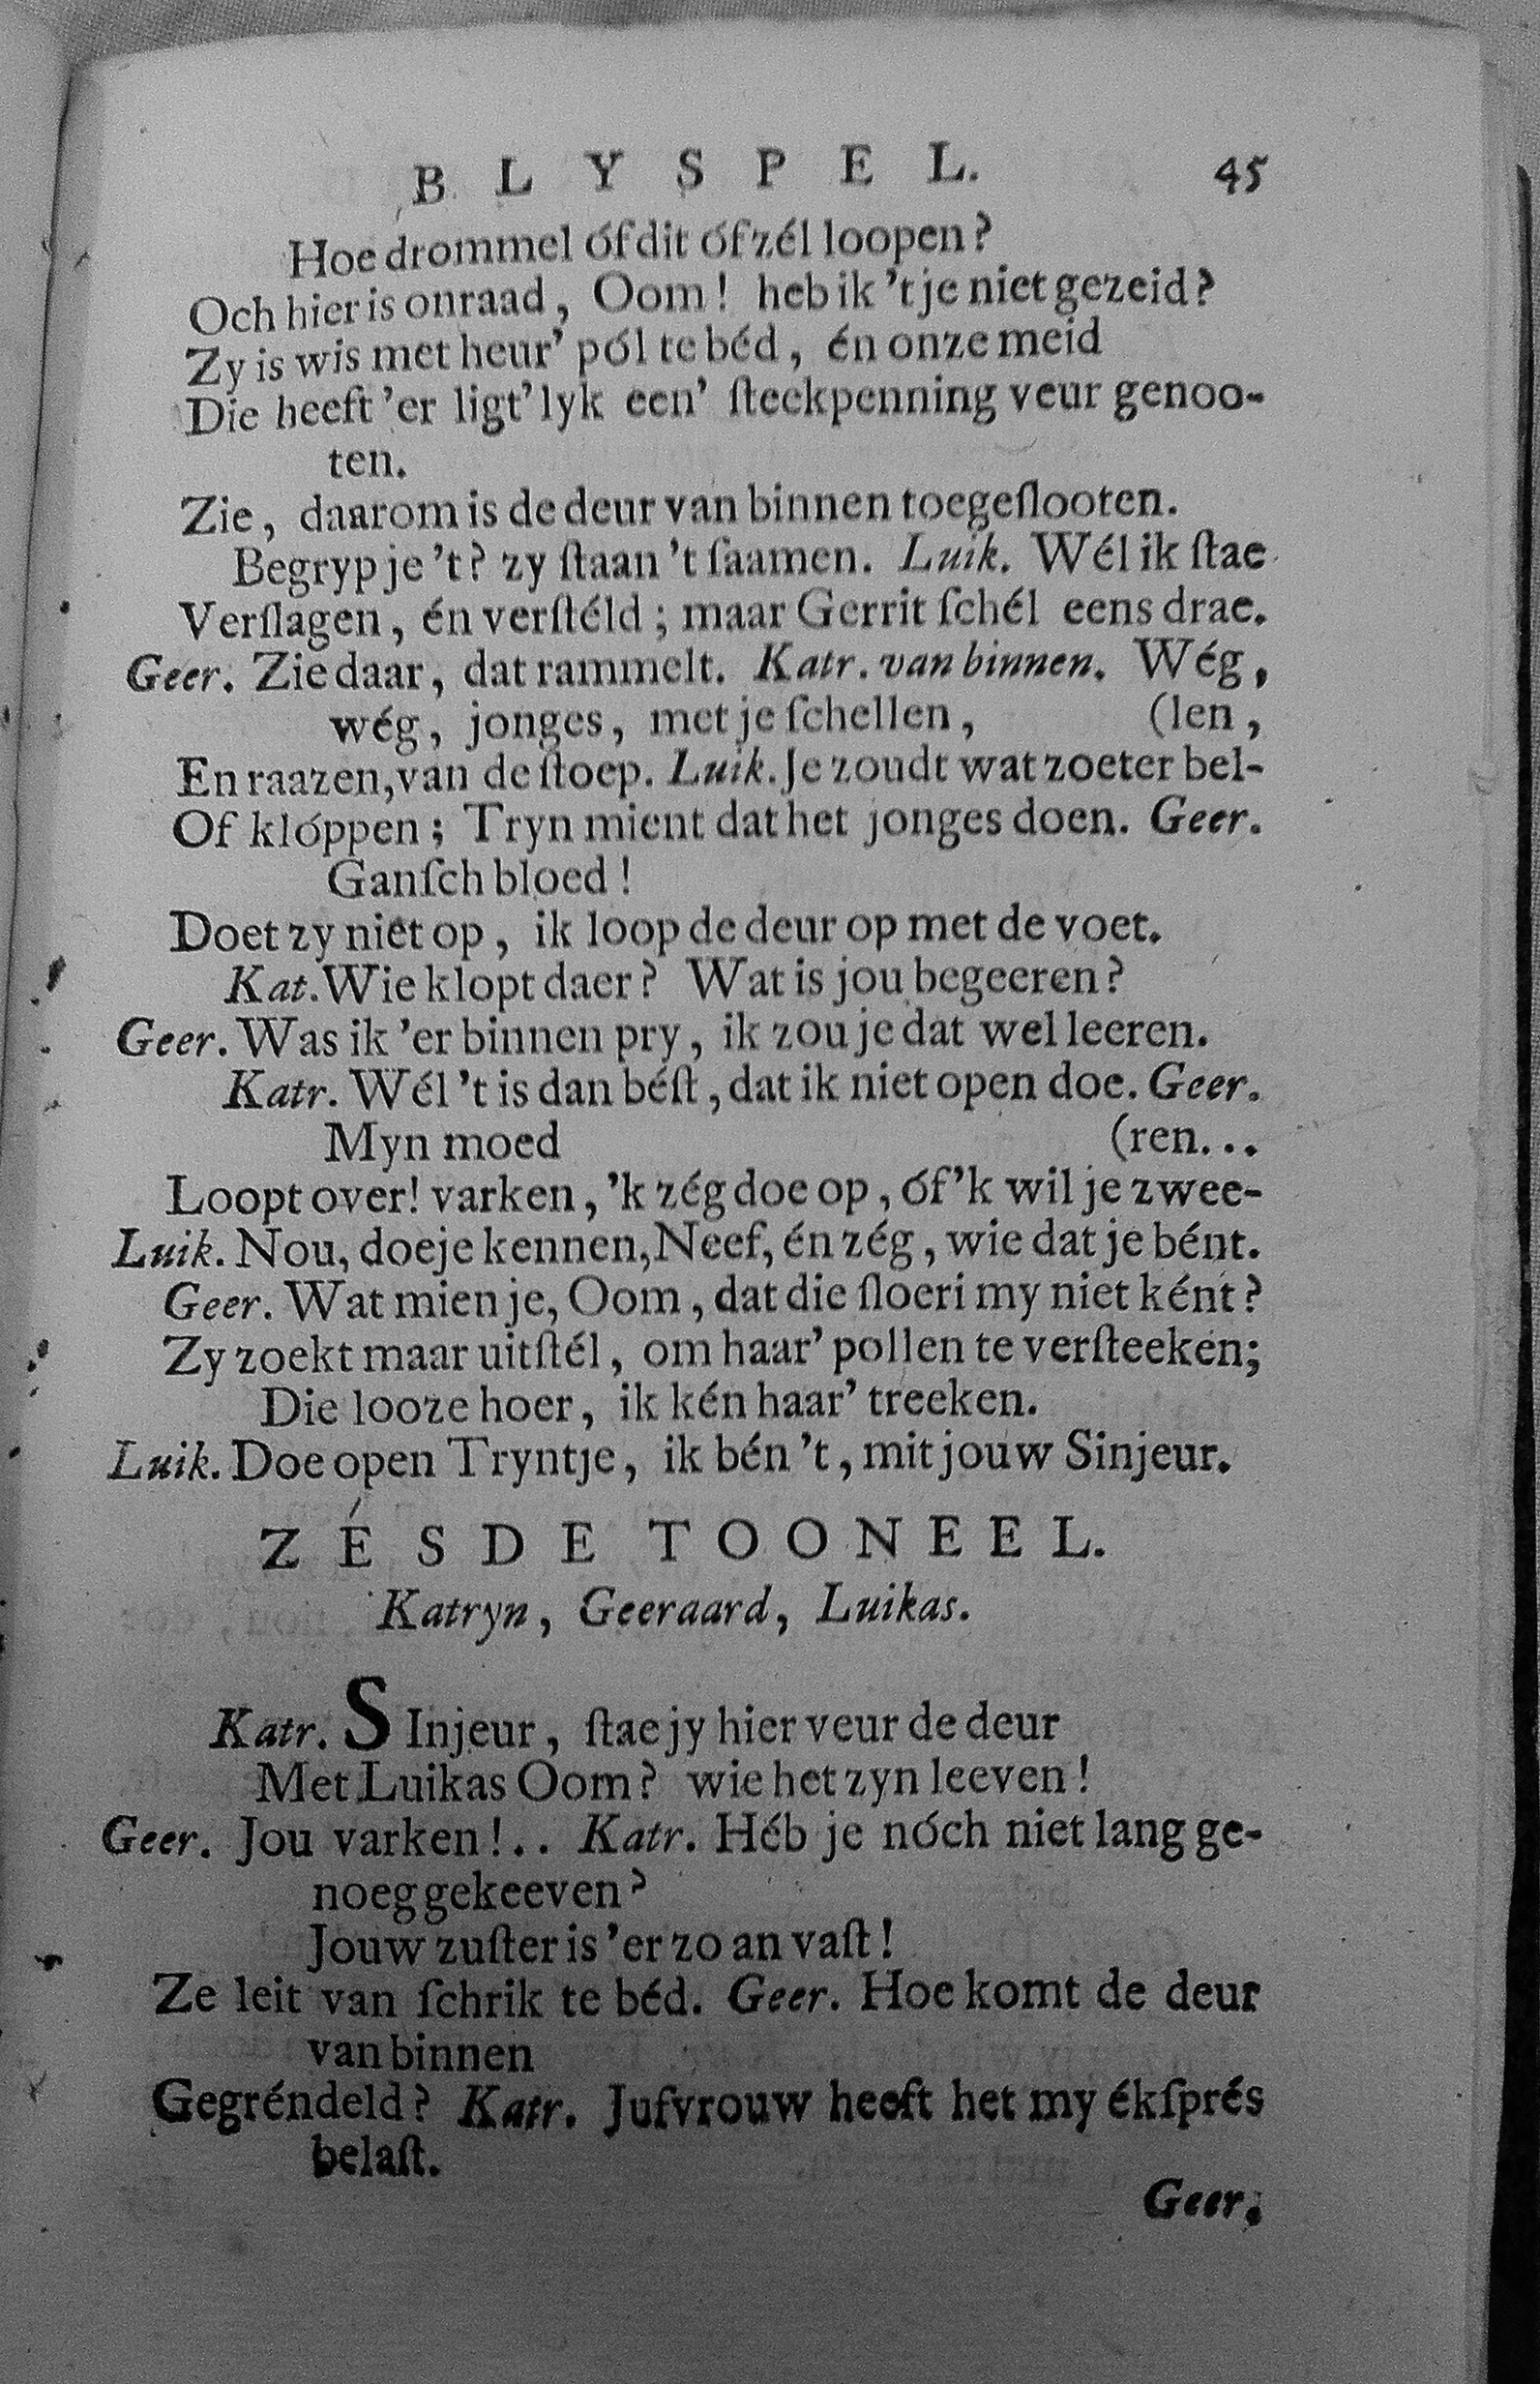 B L Y S P E L. 45
Hoe drommel óf dit óf zél loopen?
Och hier is onraad, Oom! heb ik 't je niet gezeid?
Zy is wis met heur' pól te béd, én onze meid
Die heeft 'er ligt'lyk een' ſteekpenning veur genoo-
ten.
Zie, daarom is de deur van binnen toegeſlooten.
Begryp je 't? zy ſtaan 't ſaamen. Luik. Wél ik ſtae
Verſlagen, én verſtéld; maar Gerrit ſchél eens drae.
Geer. Zie daar, dat rammelt. Katr. van binnen. Wég,
wég, jonges, met je ſchellen, (len,
En raazen, van de ſtoep. Luik. Je zoudt wat zoeter bel-
Of klóppen; Tryn mient dat het jonges doen. Geer.
Ganſch bloed!
Doet zy niet op, ik loop de deur op met de voet.
Kat. Wie klopt daer? Wat is jou begeeren?
Geer. Was ik 'er binnen pry, ik zou je dat wel leeren.
Katr. Wél 't is dan béſt, dat ik niet open doe. Geer.
Myn moed (ren...
Loopt over! varken, 'k zég doe op, óf 'k wil je zwee-
Luik. Nou, doe je kennen, Neef, én zég, wie dat je bént.
Geer. Wat mien je, Oom, dat die ſloeri my niet ként?
Zy zoekt maar uitſtél, om haar' pollen te verſteeken;
Die looze hoer, ik kén haar' treeken.
Luik. Doe open Tryntje, ik bén 't, mit jouw Sinjeur.
Z É S D E T O O N E E L.
Katryn, Geeraard, Luikas.
Katr. SInjeur, ſtae jy hier veur de deur
Met Luikas Oom? wie het zyn leeven!
Geer. Jou varken!.. Katr. Héb je nóch niet lang ge-
noeg gekeeven?
Jouw zuſter is 'er zo an vaſt!
Ze leit van ſchrik te béd. Geer. Hoe komt de deur
van binnen
Gegréndeld? Katr. Jufvrouw heeft het my ékſprés
belaſt.
Geer.